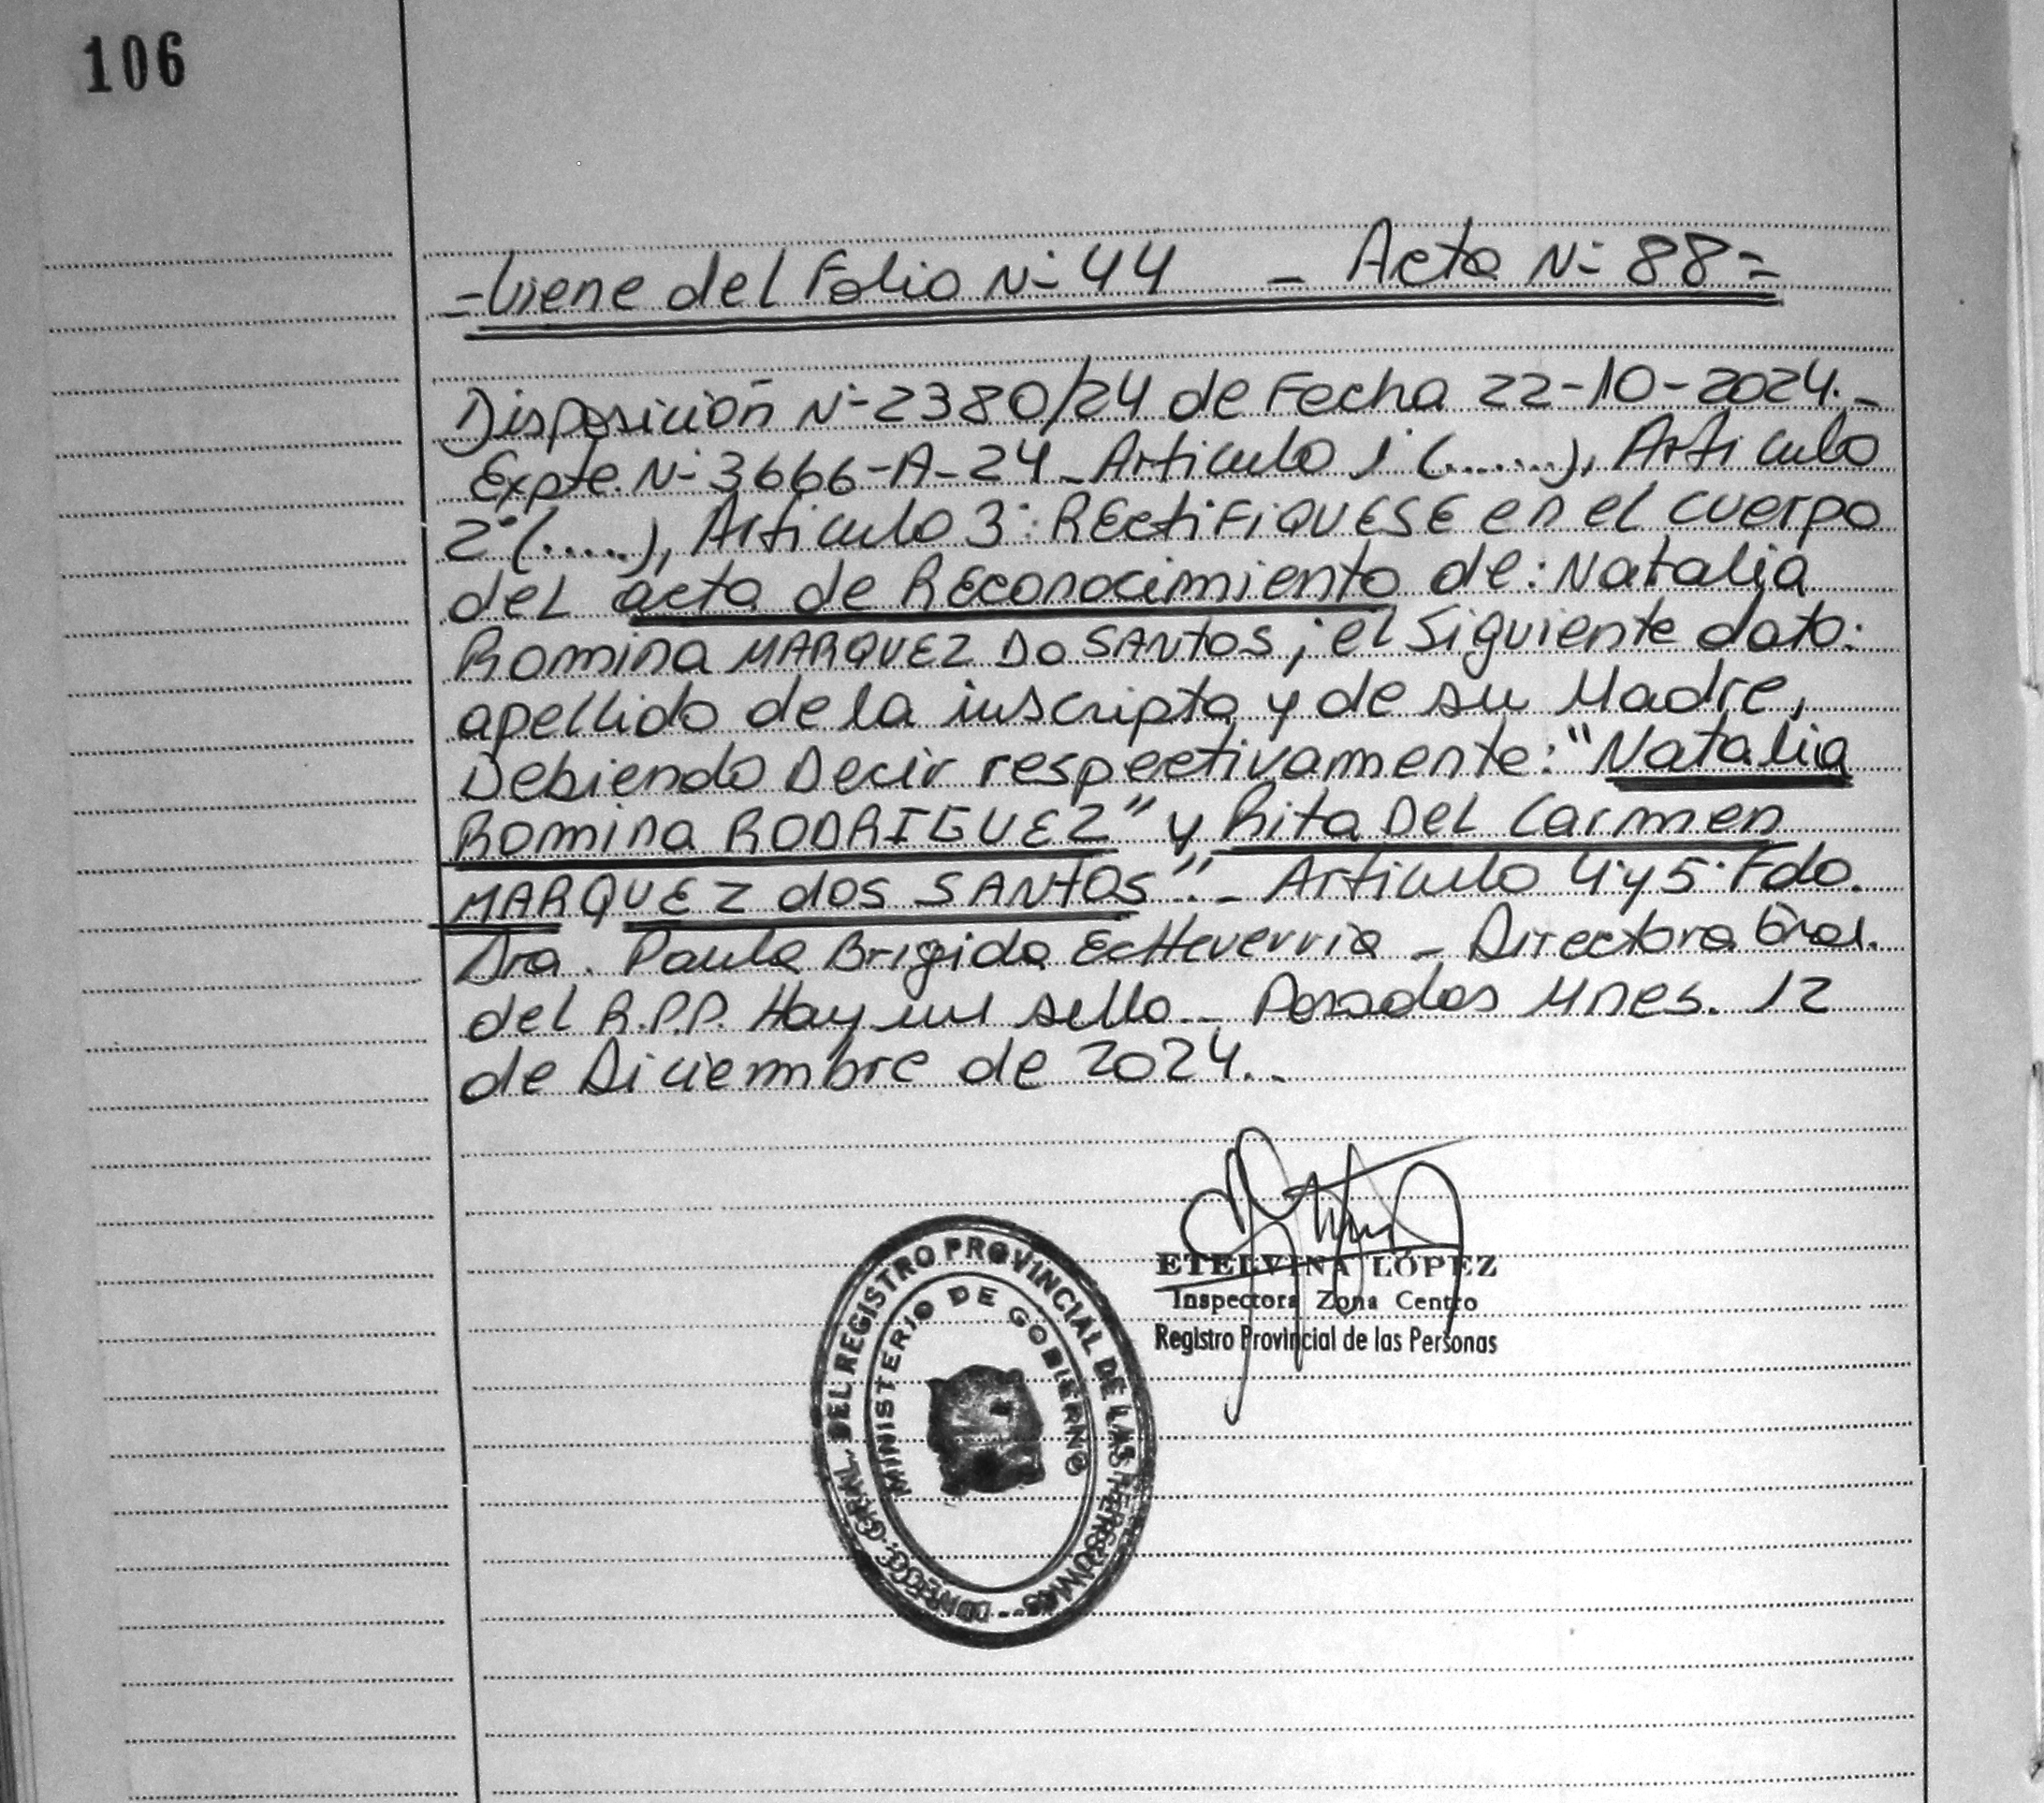 106
-Viene del Folio N- 44 - Acta N- 88=
Disposición N- 2380/24 de Fecha 22-10-2024.-
Expte. N- 3666-A-24_ Articulo 1° (.......), Articulo
2° (.....), Articulo 3°: RECtiFiQUESE en el cuerpo
del acta de REconocimiento de: Natalia
Romina MARQUEZ Do SANtOS; el Siguiente dato:
apellido de la inscripta y de su Madre,
Debiendo Decir respectivamente: "Natalia
Romina RODRIGUEZ" y Rita DEL Carmen
MARQUEZ dos SANtOS".- Articulo 4° y 5° Fdo.
Dra. Paula Brigida EcHeverria - Directora Gral.
del R.P.P. Hay un sello - Posadas Mnes. 12
de Diciembre de 2024..
ETELVINA LÓPEZ
Inspectora Zona Centro
Registro Provincial de las Personas
DIRECC. GRAL. DEL REGISTRO PROVINCIAL DE LAS PERSONAS
MINISTERIO DE GOBIERNO